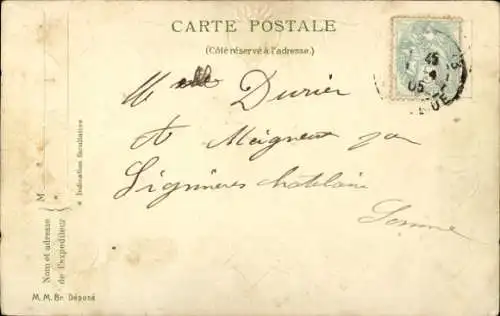 CARTE POSTALE
(Côté réservé à l'adresse.)
Melle Durier
A Meigneux par
Lignières chatelain
Somme
M
Nom et adresse
de l'expéditeur
* Indication facultative
M. M. Br. Déposé
45
4
05